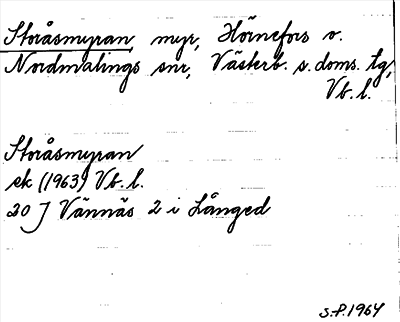 Storåsmyran, myr, Hörnefors o.
Nordmalings snr, Västerb. s. doms. tg,
Vb. l.
Storåsmyran
ek (1963) Vb. l.
20 J Vännäs 2 i Långed
S.P. 1964